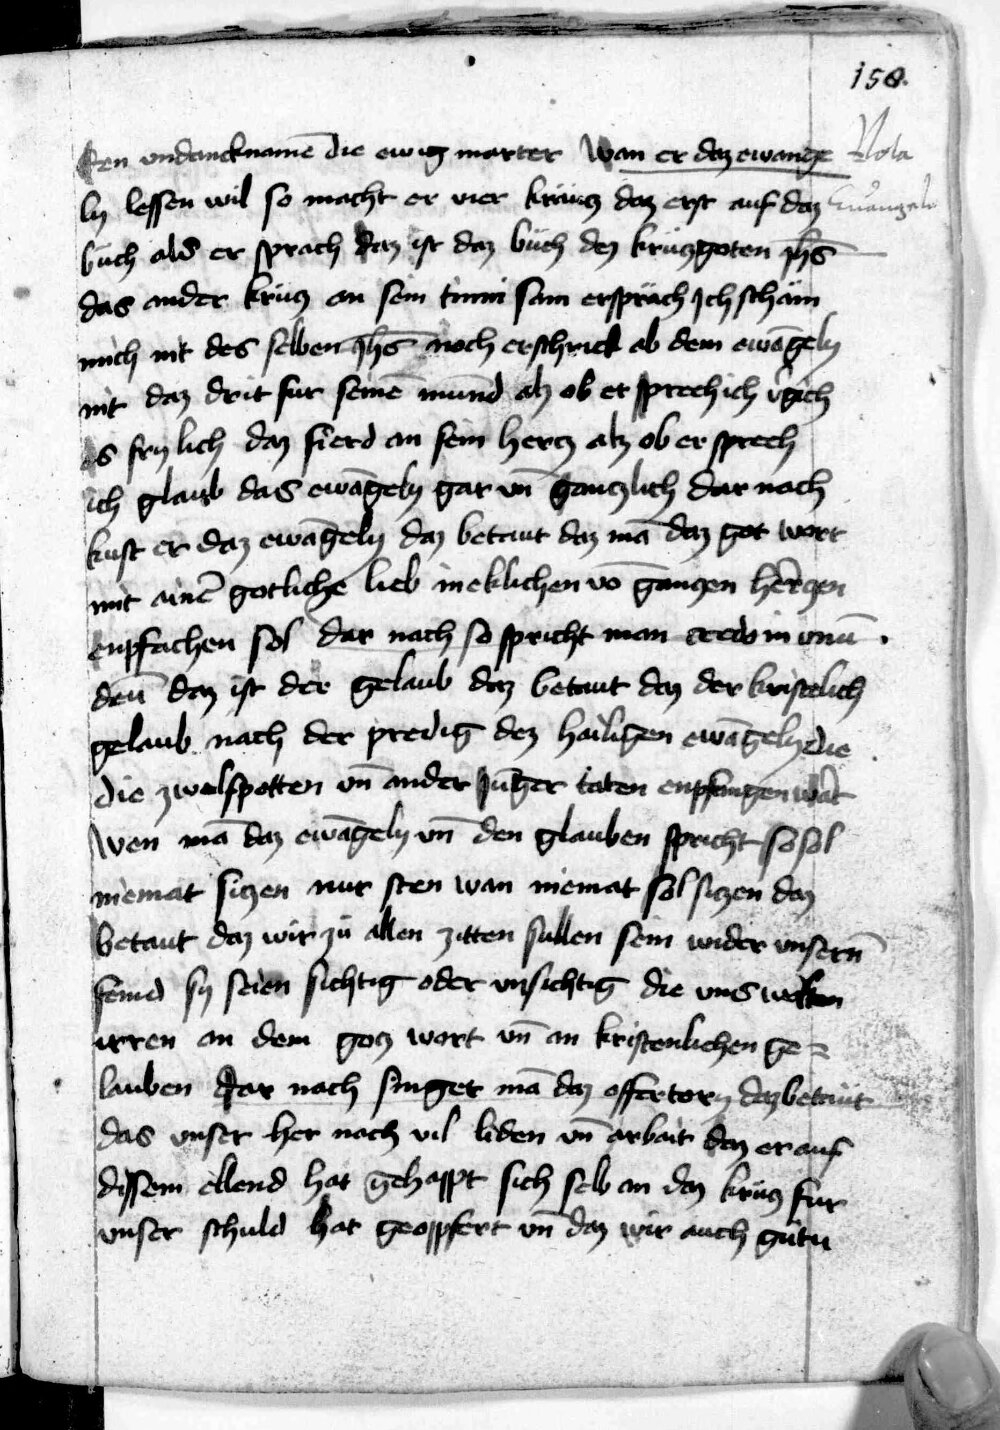 158.
ken undancknamē die ewig marter Wan er daz ewange
Nota
ly lessen wil so macht er vier krütz daz erst auf daz
Ewangely
buch als er sprach daz ist daz büch dez krützgoten jhs̄
das ander krütz an sein tirnn sam er spräch Ich schäm
mich nit des selben jhs̄ noch erschrick ab dem ewāgely
nit daz drit fur seinē mund alz ob er sprech ich vgich
es frylich daz fierd an sein hertz alz ob er sprech
ich glaub das ewāgely gar vn̄ gantzlich dar nach
kust er daz ewāgely daz betaut daz mā daz got wort
mit ainē gotliche lieb meklichen vō gantzen hertzen
enpfachen sol dar nach so spricht man credo in vnū .
deū daz ist der gelaub daz betaut daz der kristelich
gelaub nach der predig dez hailigen ewāgely die
die zwelfpotten vn̄ ander junger taten enpfangen wart
Wen mā daz ewāgely vn̄ den glauben spricht so sol
niemat sitzen nur sten wan niemat sol sitzen daz
betaut daz wir zü allen zitten sullen sein wider vnsern̄
feind sy seien sichtig oder vnsichtig die vns welten
irren an dem gotz wort vn̄ an kristenlichen ge=
lauben dar nach singet mā daz offertory daz betaut
das vnser her nach vil liden vn̄ arbait daz er auf
dissem ellend hat gehappt sich selb an daz krütz fur
vnser schuld hat geopfert vn̄ daz wir auch gutü